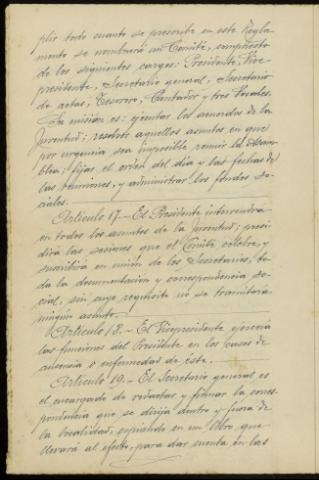 plir todo cuanto se prescribe en este Regla-
mento se nombrará un Comité, compuesto
de los siguientes cargos: Presidente, Vice-
presidente, Secretario general, Secretario
de actas, Tesorero, Contador y tres Vocales.
Su misión es: ejecutar los acuerdos de la
Juventud; resolver aquellos asuntos en que
por urgencia sea imposible reunir la Asam-
blea; fijar el orden del día y las fechas de
las reuniones, y administrar los fondos so-
ciales.
Artículo 17.- El Presidente intervendrá
en todos los asuntos de la Juventud; presi-
dirá las sesiones que el Comité celebre, y
suscribirá en unión de los Secretarios, to-
da la documentación y correspondencia so-
cial, sin cuyo requisito no se tramitará
ningún asunto.
Artículo 18.- El Vicepresidente ejercerá
las funciones del Presidente en los casos de
ausencia o enfermedad de éste.
Artículo 19.- El Secretario general es
el encargado de redactar y firmar la corres-
pondencia que se dirija dentro y fuera de
la localidad, copiándola en un libro que
llevará al efecto, para dar cuenta en las